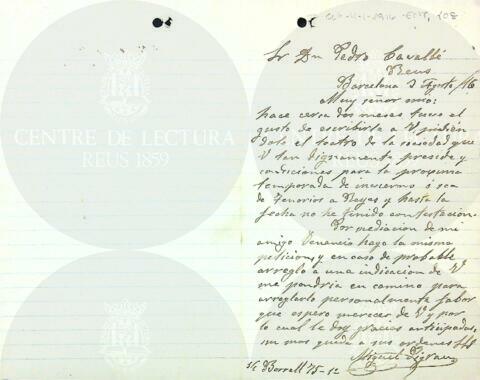 CENTRE DE LECTURA
REUS 1859
Sr Dn Pedro Cavallé
Reus
Barcelona 3 Agosto/16
Muy señor mio:
hace cerca dos meses tuve el
gusto de escribirle a V pidién
dole el teatro de la sociedad que
V tan dignamente preside y
condiciones para la proxima
temporada de invierno ó sea
de Tenorios a Reyes y hasta la
fecha no he tenido contestación.
Por mediacion de mi
amigo Venancio hago la misma
peticion, y en caso de probable
arreglo a una indicacion de V
me pondria en camino para
arreglarlo personalmente favor
que espero merecer de V y por
lo cual le doy gracias anticipadas,
sin mas queda a sus ordenes
Miguel
s/c Borrell 75-12